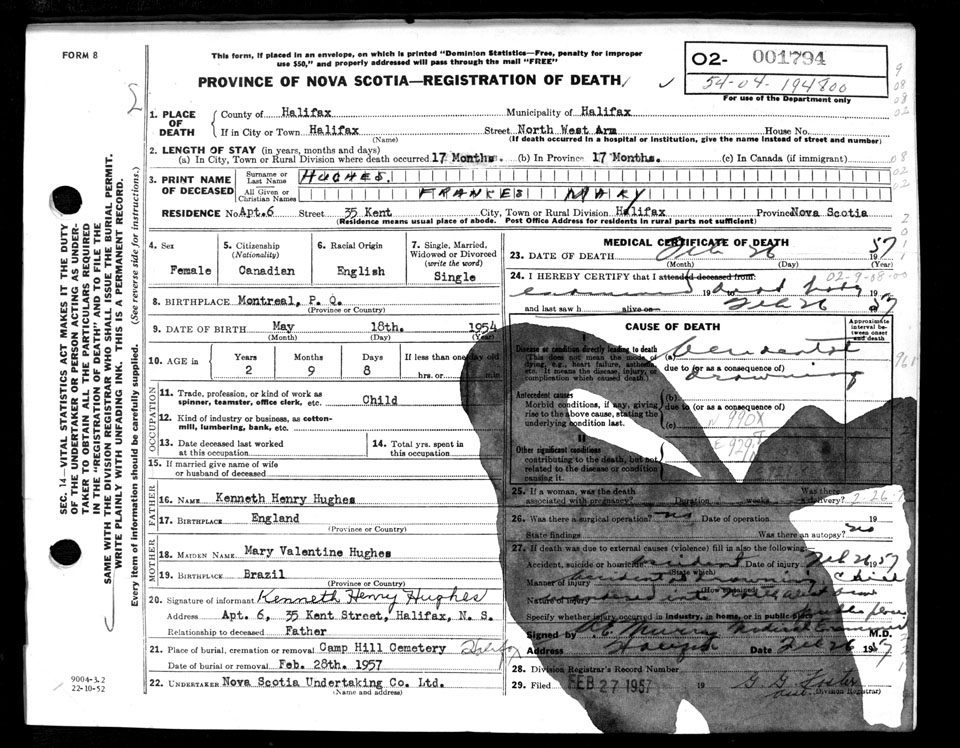 FORM 8
This form, if placed in an envelope, on which is printed "Dominion Statistics—Free, penalty for improper
use $50," and properly addressed will pass through the mail "FREE"
PROVINCE OF NOVA SCOTIA—REGISTRATION OF DEATH
02- 001794
54-04-194800
For use of the Department only
1. PLACE OF DEATH
County of Halifax Municipality of Halifax
If in City or Town Halifax Street North West Arm House No.
(Name) (If death occurred in a hospital or institution, give the name instead of street and number)
2. LENGTH OF STAY (in years, months and days)
(a) In City, Town or Rural Division where death occurred 17 Months. (b) In Province 17 Months. (c) In Canada (if immigrant)
3. PRINT NAME OF DECEASED
Surname or Last Name HUGHES.
All Given or Christian Names FRANCES MARY
RESIDENCE No Apt.6 Street 35 Kent City, Town or Rural Division Halifax Province Nova Scotia
(Residence means usual place of abode. Post Office Address for residents in rural parts not sufficient)
4. Sex
Female
5. Citizenship
(Nationality)
Canadian
6. Racial Origin
English
7. Single, Married,
Widowed or Divorced
(write the word)
Single
8. BIRTHPLACE Montreal, P. Q.
(Province or Country)
9. DATE OF BIRTH May 18th. 1954
(Month) (Day) (Year)
10. AGE in
Years Months Days If less than one day old
2 9 8 hrs. or min.
OCCUPATION
11. Trade, profession, or kind of work as
spinner, teamster, office clerk, etc. Child
12. Kind of industry or business, as cotton-
mill, lumbering, bank, etc.
13. Date deceased last worked
at this occupation
14. Total yrs. spent in
this occupation
15. If married give name of wife
or husband of deceased
FATHER
16. NAME Kenneth Henry Hughes
17. BIRTHPLACE England
(Province or Country)
MOTHER
18. MAIDEN NAME Mary Valentine Hughes
19. BIRTHPLACE Brazil
(Province or Country)
20. Signature of informant Kenneth Henry Hughes
Address Apt. 6, 35 Kent Street, Halifax, N. S.
Relationship to deceased Father
21. Place of burial, cremation or removal Camp Hill Cemetery Halifax
Date of burial or removal Feb. 28th. 1957
22. UNDERTAKER Nova Scotia Undertaking Co. Ltd.
(Name and address)
MEDICAL CERTIFICATE OF DEATH
23. DATE OF DEATH Feb 26 1957
(Month) (Day) (Year)
24. I HEREBY CERTIFY that I attended deceased from: 02-9-08-00
examined 19 dead body 19
and last saw h alive on Feb 26 57
CAUSE OF DEATH
Approximate
interval be-
tween onset
and death
I
Disease or condition directly leading to death
(This does not mean the mode of
dying, e.g., heart failure, asthenia,
etc. It means the disease, injury, or
complication which caused death.)
(a) Accidental
due to (or as a consequence of)
drowning
Antecedent causes
Morbid conditions, if any, giving
rise to the above cause, stating the
underlying condition last.
(b)
due to (or as a consequence of)
(c) N990X
E929
II
Other significant conditions
contributing to the death, but not
related to the disease or condition
causing it.
25. If a woman, was the death
associated with pregnancy? Duration weeks Was there delivery? 2.26.7
26. Was there a surgical operation? no Date of operation 19
State findings Was there an autopsy? no
27. If death was due to external causes (violence) fill in also the following:
Accident, suicide or homicide accident Date of injury Feb 26 1957
(State which)
Manner of injury accidental drowning, child
(How sustained)
Nature of injury wandered into North West Arm
Specify whether injury occurred in industry, in home, or in public place public place
Signed by Murray Medical Examiner M.D.
Address Halifax Date Feb 26 1957
28. Division Registrar's Record Number
29. Filed FEB 27 1957 19
Division Registrar)
SEC. 14—VITAL STATISTICS ACT MAKES IT THE DUTY
OF THE UNDERTAKER OR PERSON ACTING AS UNDER-
TAKER TO OBTAIN ALL THE PARTICULARS REQUIRED
IN THE "REGISTRATION OF DEATH" AND TO FILE THE
SAME WITH THE DIVISION REGISTRAR WHO SHALL ISSUE THE BURIAL PERMIT.
WRITE PLAINLY WITH UNFADING INK. THIS IS A PERMANENT RECORD.
Every item of information should be carefully supplied. (See reverse side for instructions.)
9004-3.2
22-10-52